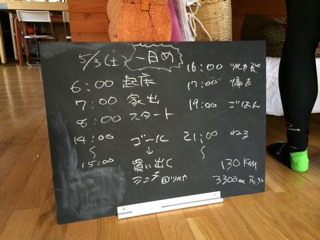 5/3(土) 一日め
6:00 起床
7:00 家出
8:00 スタート
14:00 ゴール
〜 ↓
15:00 買い出し
ランチ
16:00
17:00 帰
19:00 ごはん
21:00 ねる
〜
130Km
3300m